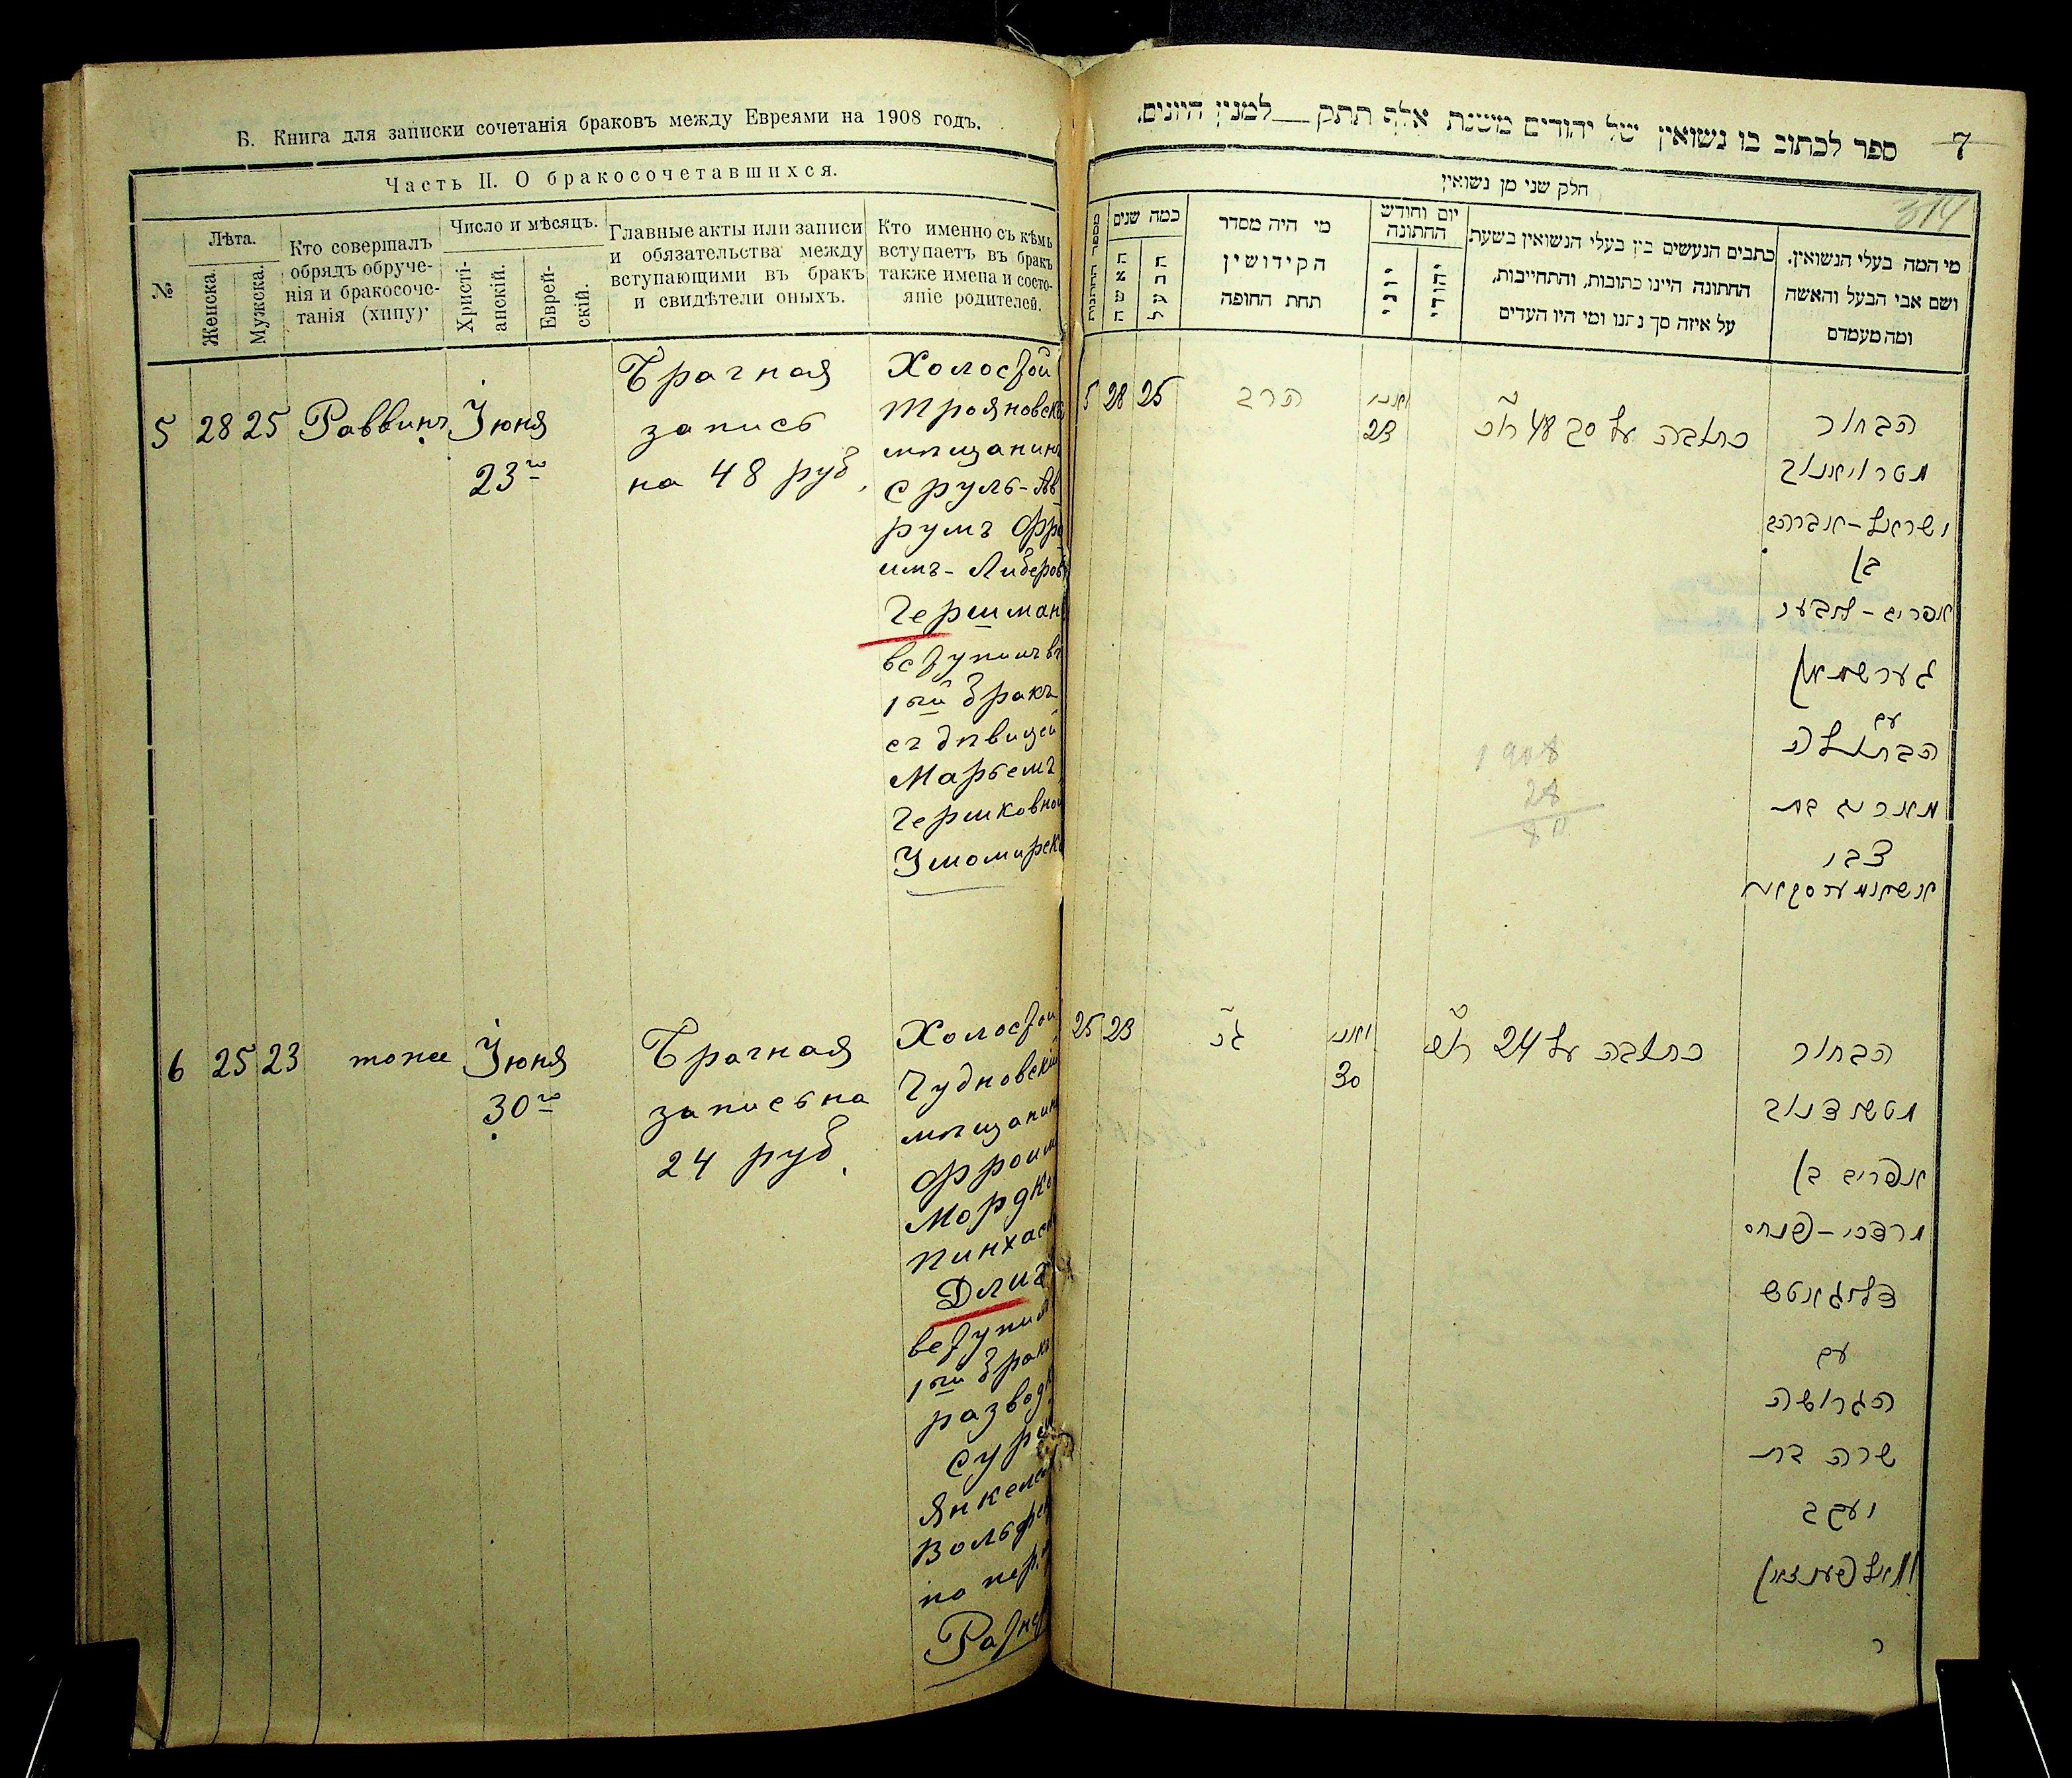 Б. Книга для записки сочетанія браковъ между Евреями на 1908 годъ.
Часть II. О бракосочетавшихся.
№
Лѣта.
Женска.
Мужска.
Кто совершалъ
обрядъ обруче-
нія и бракосоче-
танія (хипу).
Число и мѣсяцъ.
Христі-
анскій.
Еврей-
скій.
Главные акты или записи
и обязательства между
вступающими въ бракъ
и свидѣтели оныхъ.
Кто именно съ кѣмъ
вступаетъ въ бракъ
также имена и состо-
яніе родителей.
5 28 25 Раввинъ Іюня
23го
Брачная
запись
на 48 руб.
Холостой
Трояновск
мѣщанинъ
Сруль-Ав
румъ Фро
имъ-Либеров
Гершман
вступилъ въ
1ый бракъ
съ дѣвицей
Марьемъ
Гершковной
Ушомирск
6 25 23 тоже Іюня
30го
Брачная
запись на
24 руб.
Холостой
Чудновскій
мѣщанинъ
Фроим
Мордко
Пинхас
Длуг
вступил
1ый брак
развод
Сур
Янкел
Вольф
по пер.
ספר לכתוב בו נשואין של יהודים משנת אלף תתק למנין היונים.
7
314
חלק שני מן נשואין
מי המה בעלי הנשואין.
ושם אבי הבעל והאשה
ומה מעמדם
כתבים הנעשים בין בעלי הנשואין בשעת
החתונה היינו כתובות, והתחייבות,
על איזה סך נתנו ומי היו העדים
יום וחודש
החתונה
יהודי
יוני
מי היה מסדר
הקידושין
תחת החופה
כמה שנים
הבעל
האשה
מספר החתונות
5 28 25
הרב
יוני
23
כתובה על סך 48 רוכ
הבחור
מטרויאנוב
ישראל-אברהם
בן
אפרים-ליבער
גערשמאן
עם
הבתולה
מארים בת
צבי
1908
28
80
25 23
יוני
30
כתובה על 24
הבחור
מטשודנוב
אפרים בן
מרדכי-פנחס
עם
הגרושה
שרה בת
יעקב